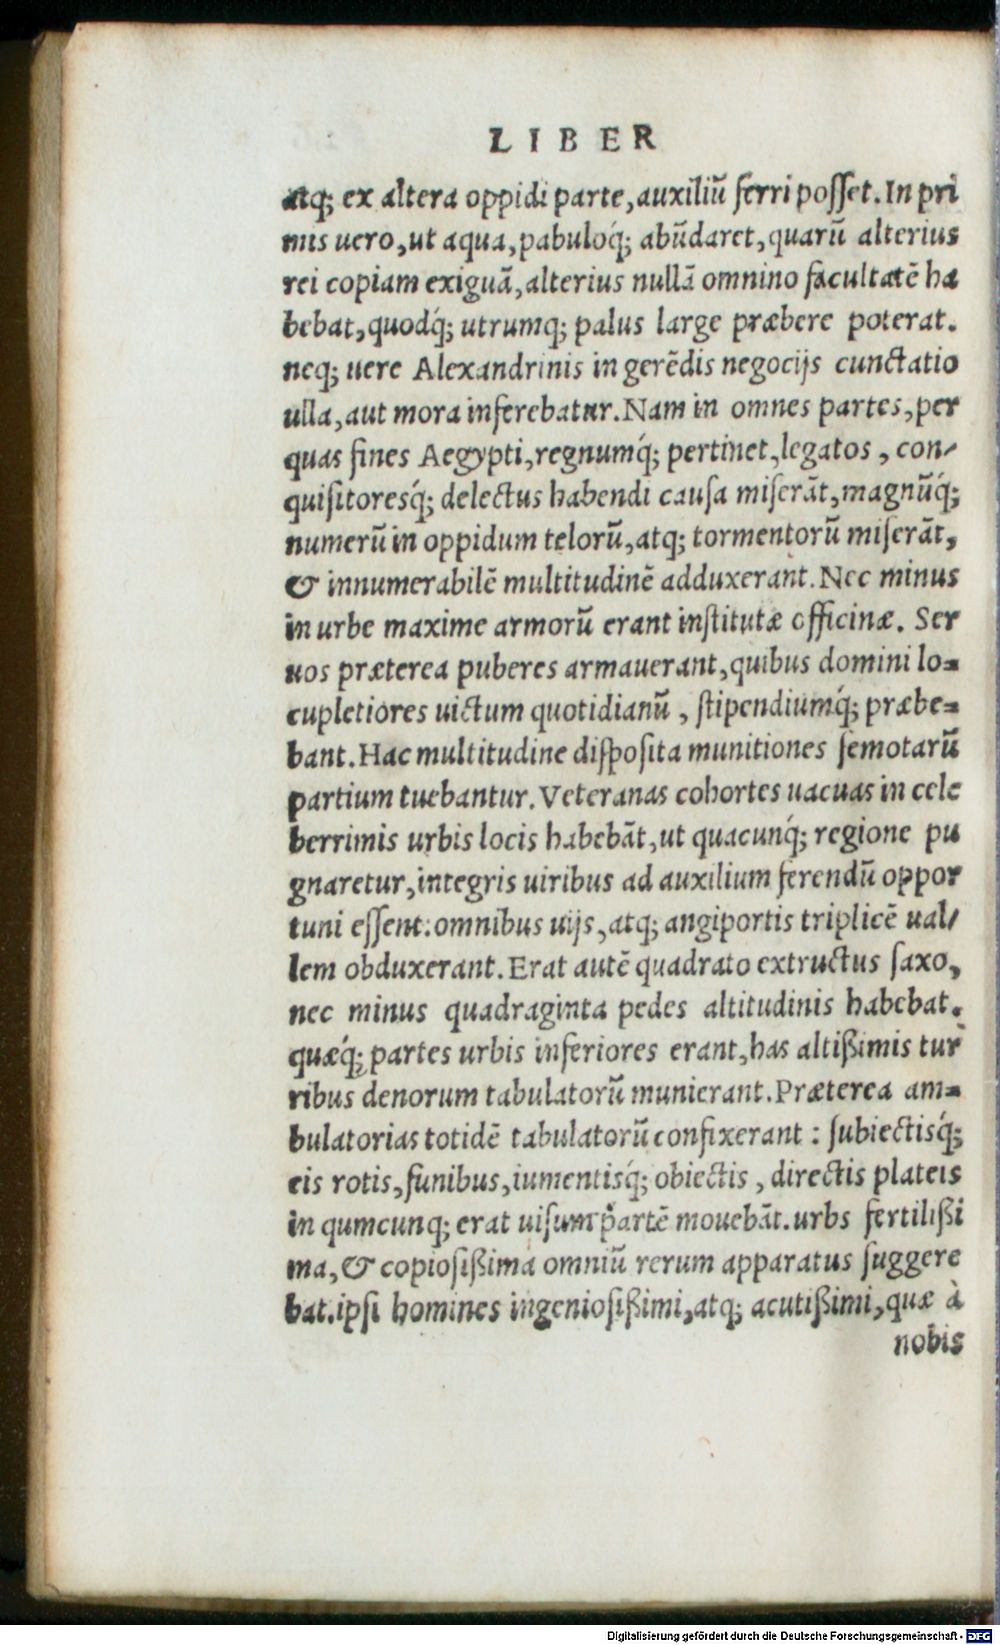 LIBER
atq; ex altera oppidi parte, auxiliũ ferri posset. In pri
mis uero, ut aqua, pabuloq́; abũdaret, quarũ alterius
rei copiam exiguã, alterius nullã omnino facultatẽ ha
bebat, quodq́; utrumq; palus large præbere poterat.
neq; uere Alexandrinis in gerẽdis negocijs cunctatio
ulla, aut mora inferebatur. Nam in omnes partes, per
quas fines Aegypti, regnumq́; pertinet, legatos, con/
quisitoresq́; delectus habendi causa miserãt, magnũq́;
numerũ in oppidum telorũ, atq; tormentorũ miserãt,
& innumerabilẽ multitudinẽ adduxerant. Nec minus
in urbe maxime armorũ erant institutæ officinæ. Ser
uos præterea puberes armauerant, quibus domini lo=
cupletiores uictum quotidianũ, stipendiumq́; præbe=
bant. Hac multitudine disposita munitiones semotarũ
partium tuebantur. Veteranas cohortes uacuas in cele
berrimis urbis locis habebãt, ut quacunq́; regione pu
gnaretur, integris uiribus ad auxilium ferendũ oppor
tuni essent: omnibus uijs, atq; angiportis triplicẽ ual/
lem obduxerant. Erat autẽ quadrato extructus saxo,
nec minus quadraginta pedes altitudinis habebat.
quæq́; partes urbis inferiores erant, has altißimis tur
ribus denorum tabulatorũ munierant. Præterea am=
bulatorias totidẽ tabulatorũ confixerant: subiectisq́;
eis rotis, funibus, iumentisq́; obiectis, directis plateis
in qumcunq; erat uisum partẽ mouebãt. urbs fertilißi
ma, & copiosißima omniũ rerum apparatus suggere
bat. ipsi homines ingeniosißimi, atq; acutißimi, quæ à
nobis
Digitalisierung gefördert durch die Deutsche Forschungsgemeinschaft - DFG